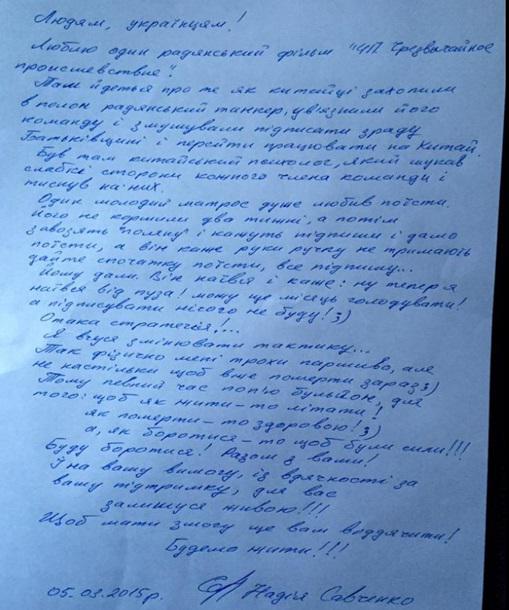 Людям, українцям!
Люблю один радянський фільм "ЧП Чрезвычайное
происшевствие".
Там йдеться про те як китайці захопили
в полон радянський танкер, ув'язнили його
команду і змушували підписати зраду
Батьківщині і перейти працювати на Китай.
Був там китайський психолог, який шукав
слабкі сторони кожного члена команди і
тиснув на них.
Один молодий матрос дуже любив поїсти.
Його не кормили два тижні, а потім
завозять "поляну" і кажуть підпиши і дамо
поїсти, а він каже руки ручку не тримають
дайте спочатку поїсти, все підпишу...
Йому дали. Він наївся і каже: ну тепер я
наївся від пуза! можу ще місяць голодувати!
а підписувати нічого не буду! З)
Отака стратегія!...
Я вчуся змінювати тактику...
Так фізично мені трохи паршиво, але
не настільки щоб вже померти зараз З)
Тому певний час поп'ю бульйон, для
того, щоб як жити - то літати!
як померти - то здоровою! З)
а, як боротися - то щоб були сили!!!
Буду боротися! Разом з вами!
І на вашу вимогу, із вдячності за
вашу підтримку, для вас
залишуся живою!!!
Щоб мати змогу ще вам віддячити!
Будемо жити!!!
05.03.2015р. Надія Савченко